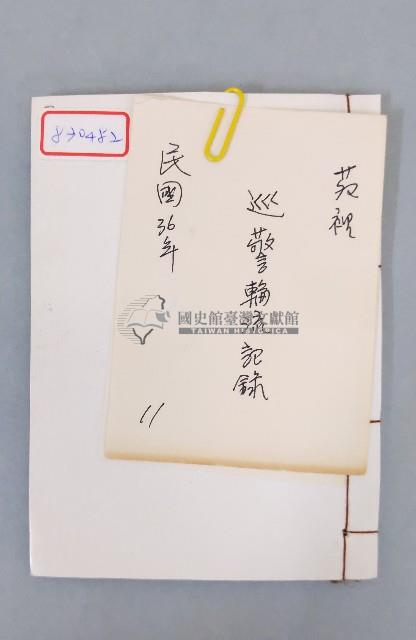 870482
苑裡
巡警輪流記錄
民國36年
11
國史館臺灣文獻館
TAIWAN HISTORICA